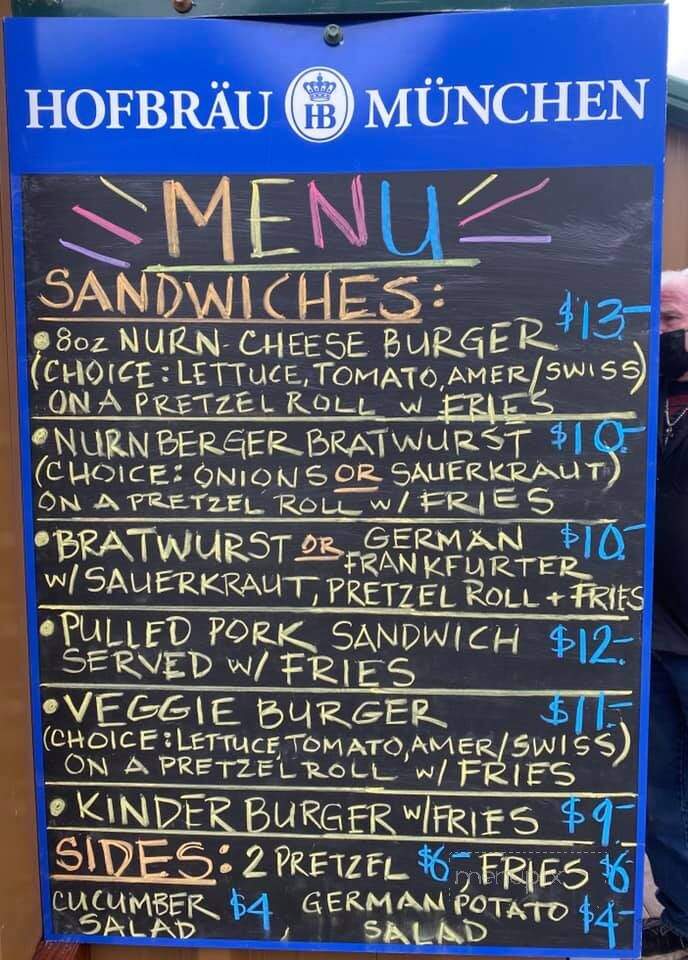 HOFBRÄU HB MÜNCHEN
MENU
SANDWICHES:
• 8oz NURN-CHEESE BURGER $13-
(CHOICE: LETTUCE, TOMATO, AMER/SWISS)
ON A PRETZEL ROLL w FRIES
• NURNBERGER BRATWURST $10-
(CHOICE: ONIONS OR SAUERKRAUT)
ON A PRETZEL ROLL w/ FRIES
• BRATWURST OR GERMAN $10-
FRANKFURTER
w/ SAUERKRAUT, PRETZEL ROLL + FRIES
• PULLED PORK SANDWICH $12-
SERVED w/ FRIES
• VEGGIE BURGER $11-
(CHOICE: LETTUCE, TOMATO, AMER/SWISS)
ON A PRETZEL ROLL w/ FRIES
• KINDER BURGER w/FRIES $9-
SIDES: 2 PRETZEL $6-, FRIES $6
menupix
CUCUMBER $4, GERMAN POTATO $4-
SALAD SALAD